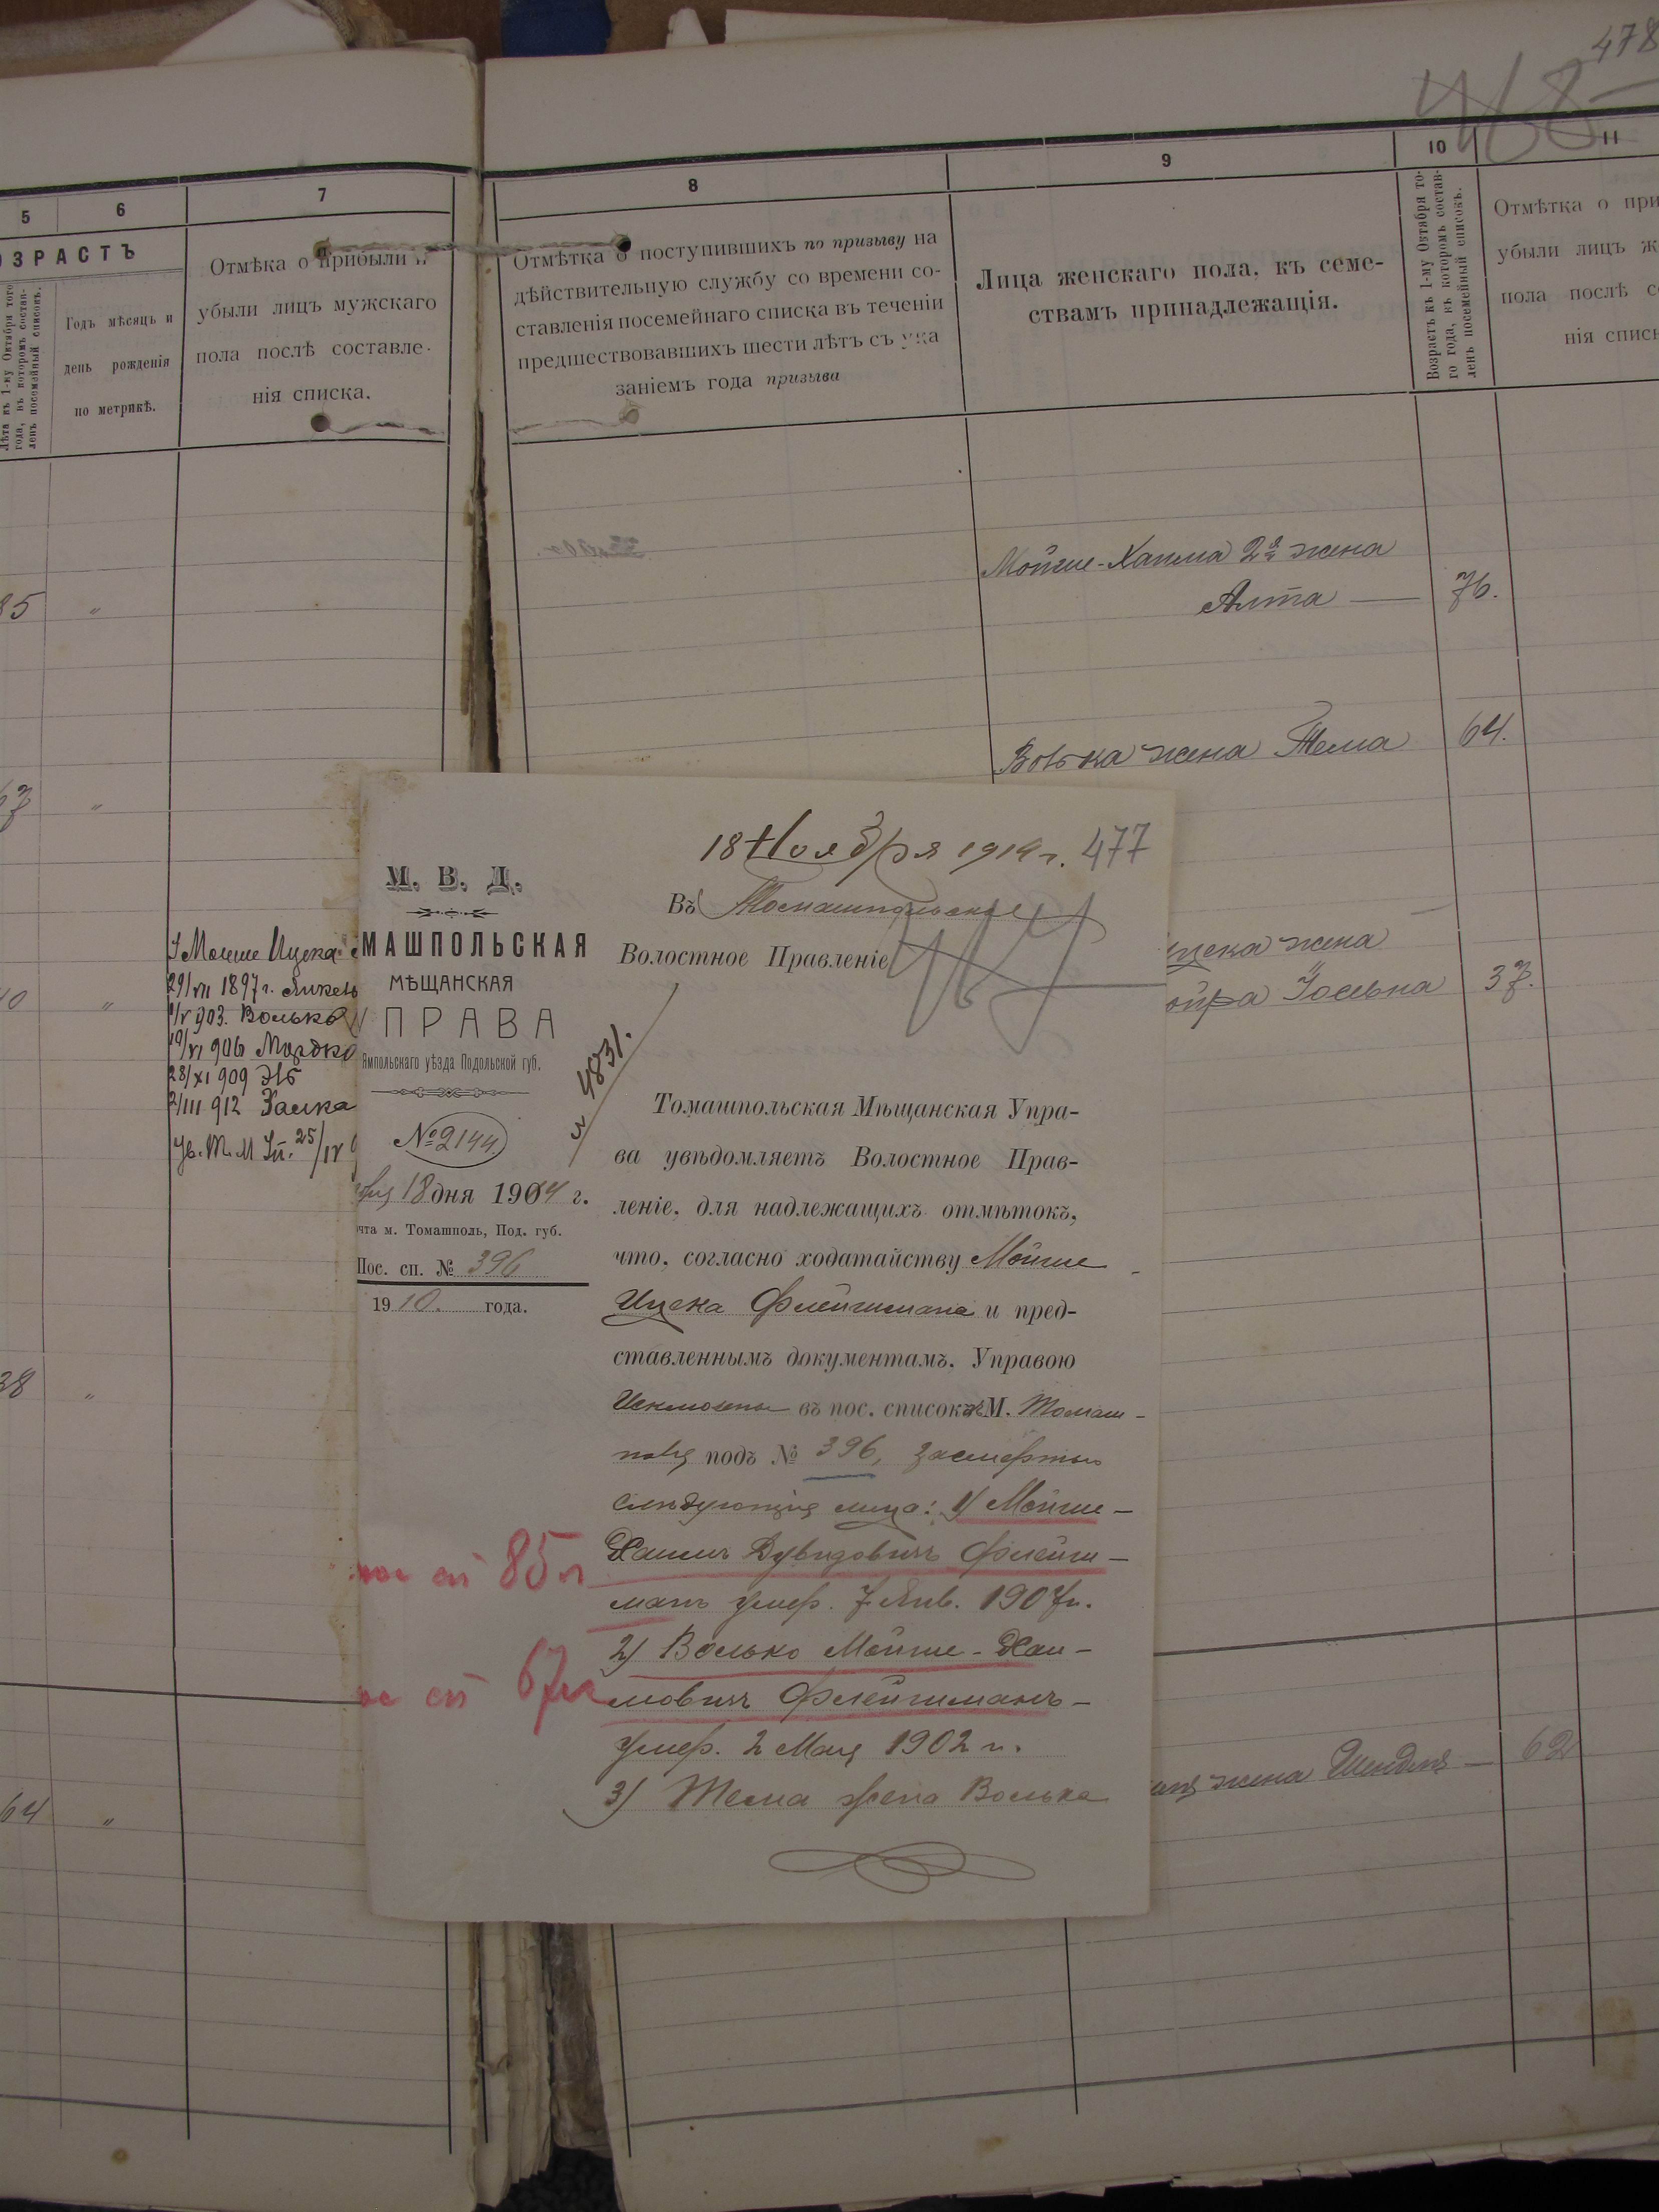 478
468
5
6
7
ОЗРАСТЪ
Лѣта къ 1-му Октября того
года, въ которомъ состав-
ленъ посемейный списокъ.
Годъ мѣсяцъ и
день рожденія
по метрикѣ.
Отмѣка о прибыли и
убыли лицъ мужскаго
пола послѣ составле-
нія списка.
85 "
67 "
40 "
У Мошие Ицека
29/VII 1897 г. Янкель
1/V 903. Волько
19/VI 906 Мордко
28/XI 909 Эль
2/III 912 Хаика
Ув. Т. М. Уп. 25/IV
38 "
64 "
8
9
10
11
Отмѣтка о поступившихъ по призыву на
дѣйствительную службу со времени со-
ставленія посемейнаго списка въ теченіи
предшествовавшихъ шести лѣтъ съ ука
заніемъ года призыва
Лица женскаго пола, къ семе-
ствамъ принадлежащія.
Возрастъ къ 1-му Октября то-
го года, въ которомъ состав-
ленъ посемейный списокъ.
Отмѣтка о при
убыли лицъ ж
пола послѣ со
нія списк
Мойше-Хаима 2я жена
Алта — 76.
Волька жена Тема 64.
ицека жена
ойра Іосьева 37.
жена Шендля — 62
18 Ноября 1914 г. 477
М. В. Д.
МАШПОЛЬСКАЯ
МѢЩАНСКАЯ
ПРАВА
Ямпольскаго уѣзда Подольской губ.
№ 2144.
18 дня 1914 г.
чта м. Томашполь, Под. губ.
Пос. сп. № 396
1910. года.
4831.
Въ Томашпольское
Волостное Правленіе
Томашпольская Мѣщанская Упра-
ва увѣдомляетъ Волостное Прав-
леніе, для надлежащихъ отмѣтокъ,
что, согласно ходатайству Мойше
Ицека Флейшмана и пред-
ставленнымъ документамъ, Управою
Исключены въ пос. список М. Томаш-
поля подъ № 396, засмертью
слѣдующія лица: 1) Мойше-
Хаимъ Дувидовичъ Флейш-
манъ умер. 7 Янв. 1907 г.
2) Волько Мойше-Хаи-
мовичъ Флейшманъ-
умер. 2 Мая 1902 г.
3) Тема жена Волька
по сп 85 л
по сп 67 л